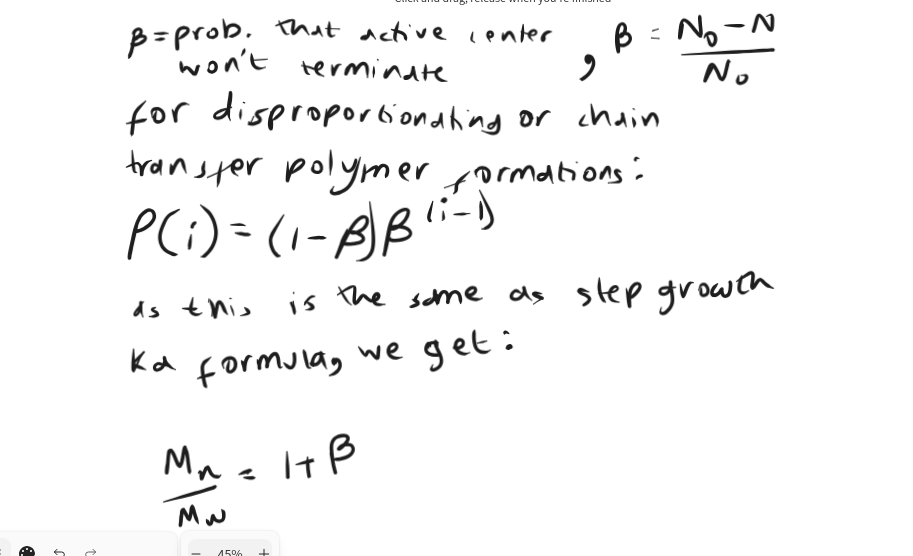 Click and drag, release when you're finished
β = prob. that active center , β = (N₀ - N)/N₀
won't terminate
for disproportionating or chain
transfer polymer formations:
P(i) = (1-β)β^(i-1)
as this is the same as step growth
ka formula, we get:
Mn/Mw = 1+β
45%